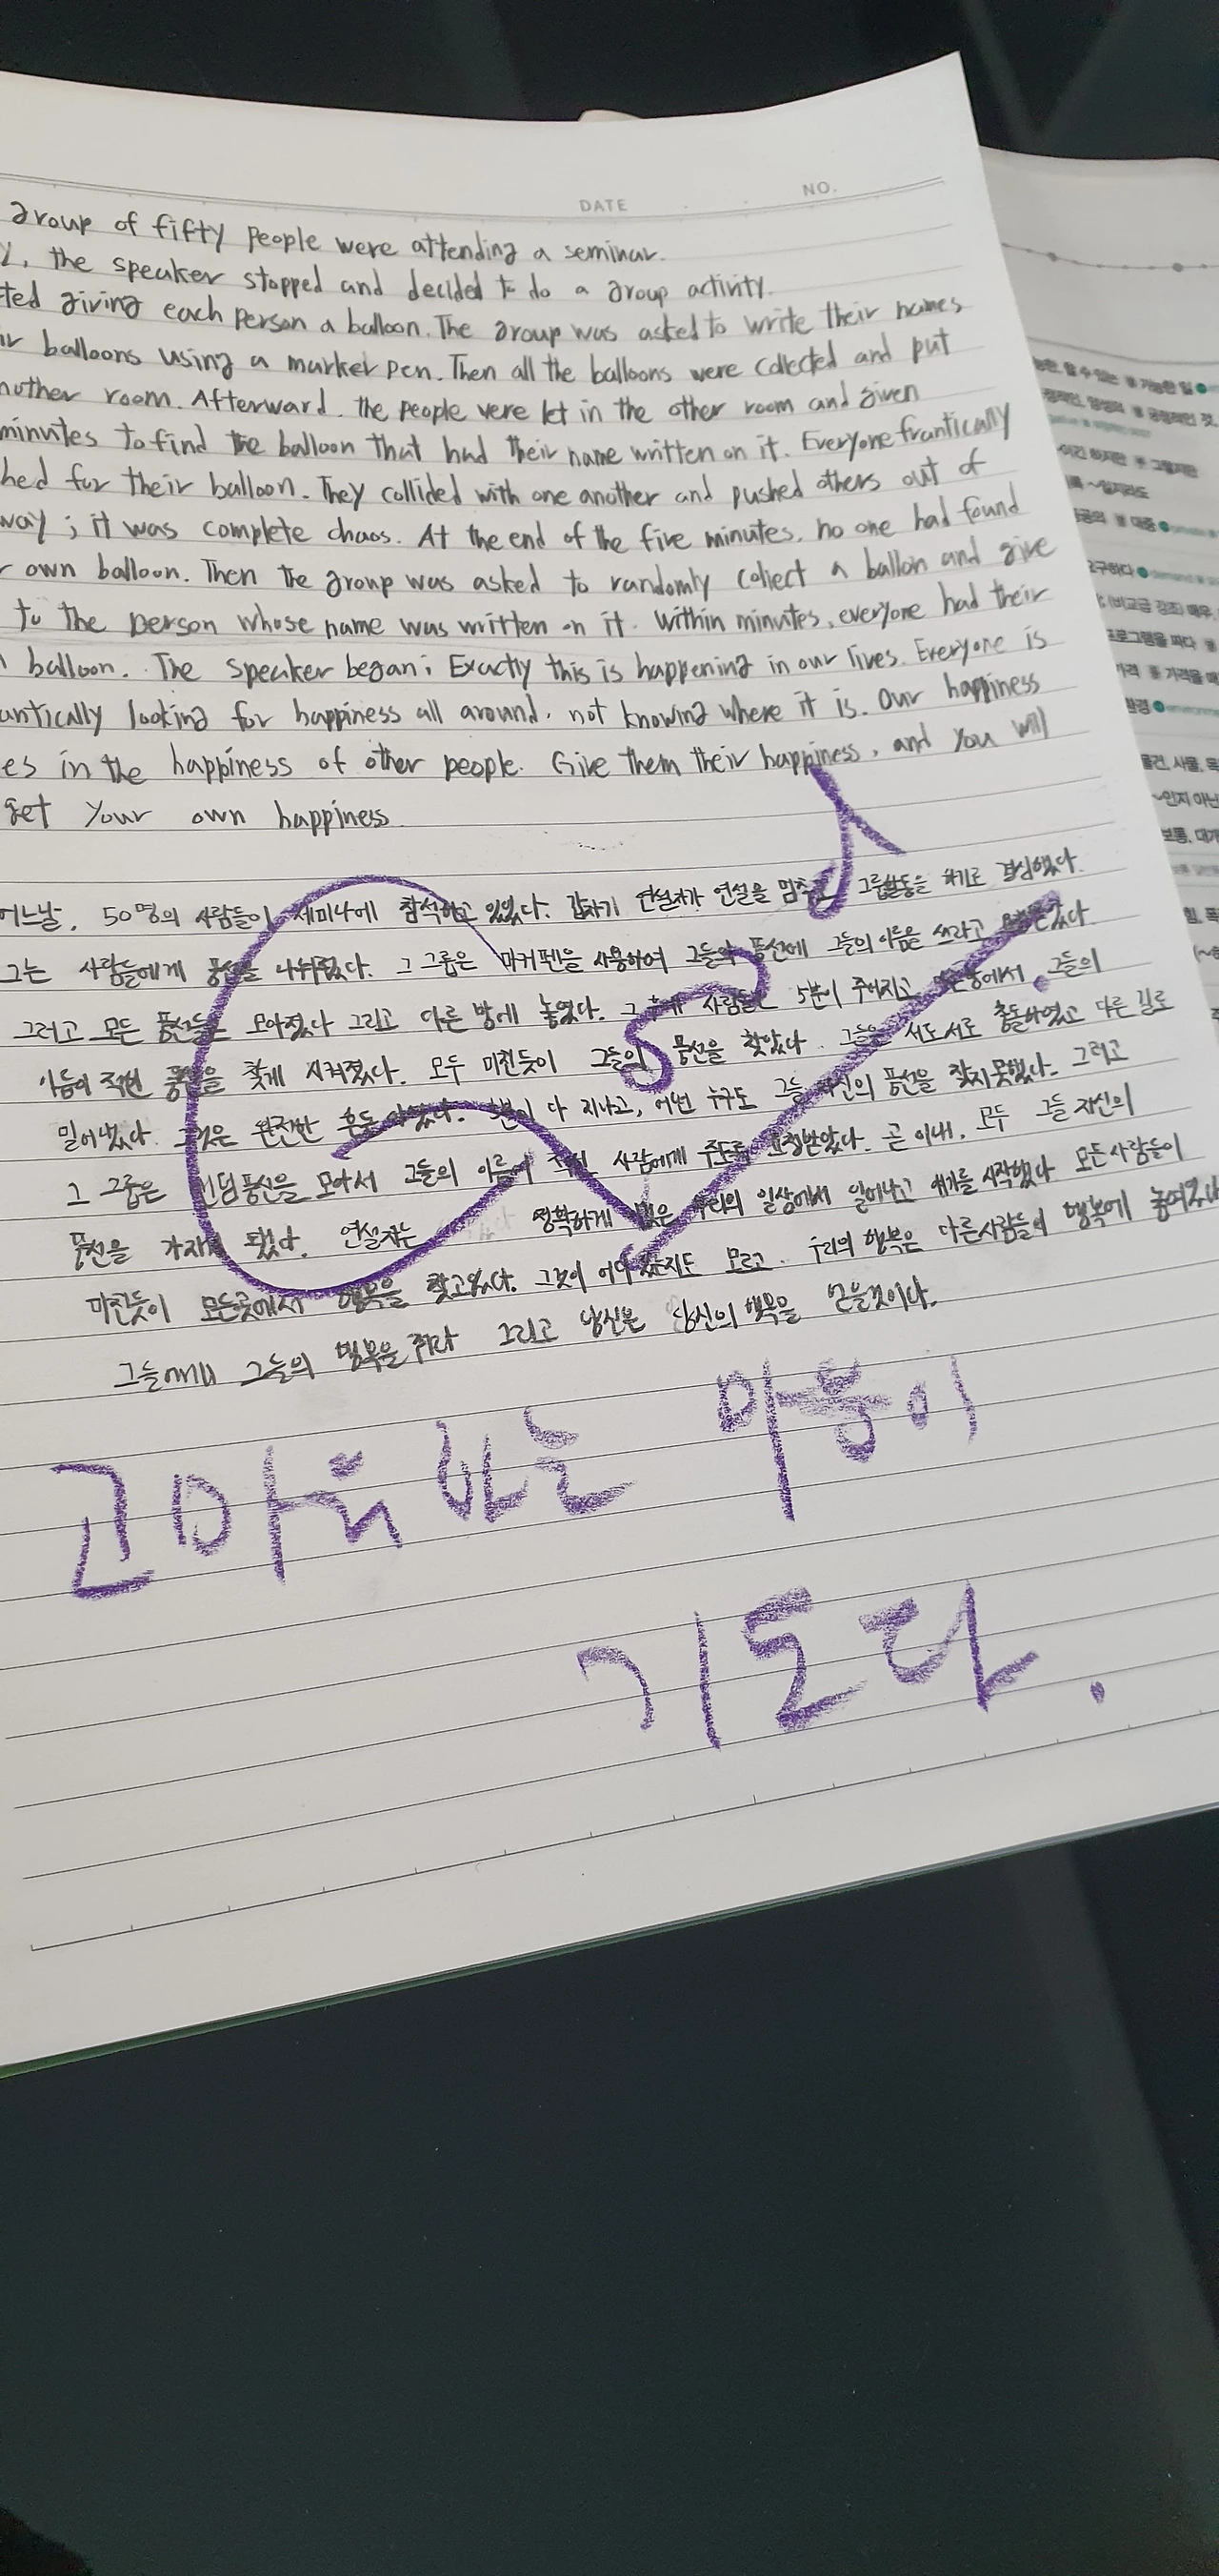 DATE NO.
group of fifty people were attending a seminar.
the speaker stopped and decided to do a group activity.
ted giving each person a balloon. The group was asked to write their names
ir balloons using a marker pen. Then all the balloons were collected and put
nother room. Afterward, the people were let in the other room and given
minutes to find the balloon that had their name written on it. Everyone frantically
hed for their balloon. They collided with one another and pushed others out of
way; it was complete chaos. At the end of the five minutes, no one had found
r own balloon. Then the group was asked to randomly collect a ballon and give
to the person whose name was written on it. Within minutes, everyone had their
balloon. The speaker began; Exactly this is happening in our lives. Everyone is
antically looking for happiness all around, not knowing where it is. Our happiness
es in the happiness of other people. Give them their happiness, and you will
get your own happiness.
어느날, 50명의 사람들이 세미나에 참석하고 있었다. 갑자기 연설자가 연설을 멈추고 그룹활동을 하기로 결심했다.
그는 사람들에게 풍선을 나눠줬다. 그 그룹은 마커펜을 사용하여 그들의 풍선에 그들의 이름을 쓰라고
그리고 모든 풍선들은 모아졌다 그리고 다른 방에 놓였다. 그 후에 사람들은 5분이 주어지고 그들의
이름이 적힌 풍선을 찾게 시켜졌다. 모두 미친듯이 그들의 풍선을 찾았다. 그들은 서도 서로 충돌하였고 다른 길로
밀어냈었다. 그것은 완전한 5분이 다 지나고, 어떤 누구도 그들 자신의 풍선을 찾지 못했다. 그리고
그 그룹은 랜덤풍선을 모아서 그들의 이름이 적힌 사람에게 주도록 요청받았다. 곧 이내, 모두 그들 자신의
풍선을 가지게 됐었다. 연설자는 정확하게 이것은 우리의 일상에서 일어나고 얘기를 시작했다 모든 사람들이
미친듯이 모든곳에서 행복을 찾고있다. 그것이 어디 있는지도 모르고. 우리의 행복은 다른사람들의 행복에 놓여있다
그들에게 그들의 행복을 줘라 그리고 당신은 당신의 행복을 얻을것이다.
고마워하는 마음이
기도다.